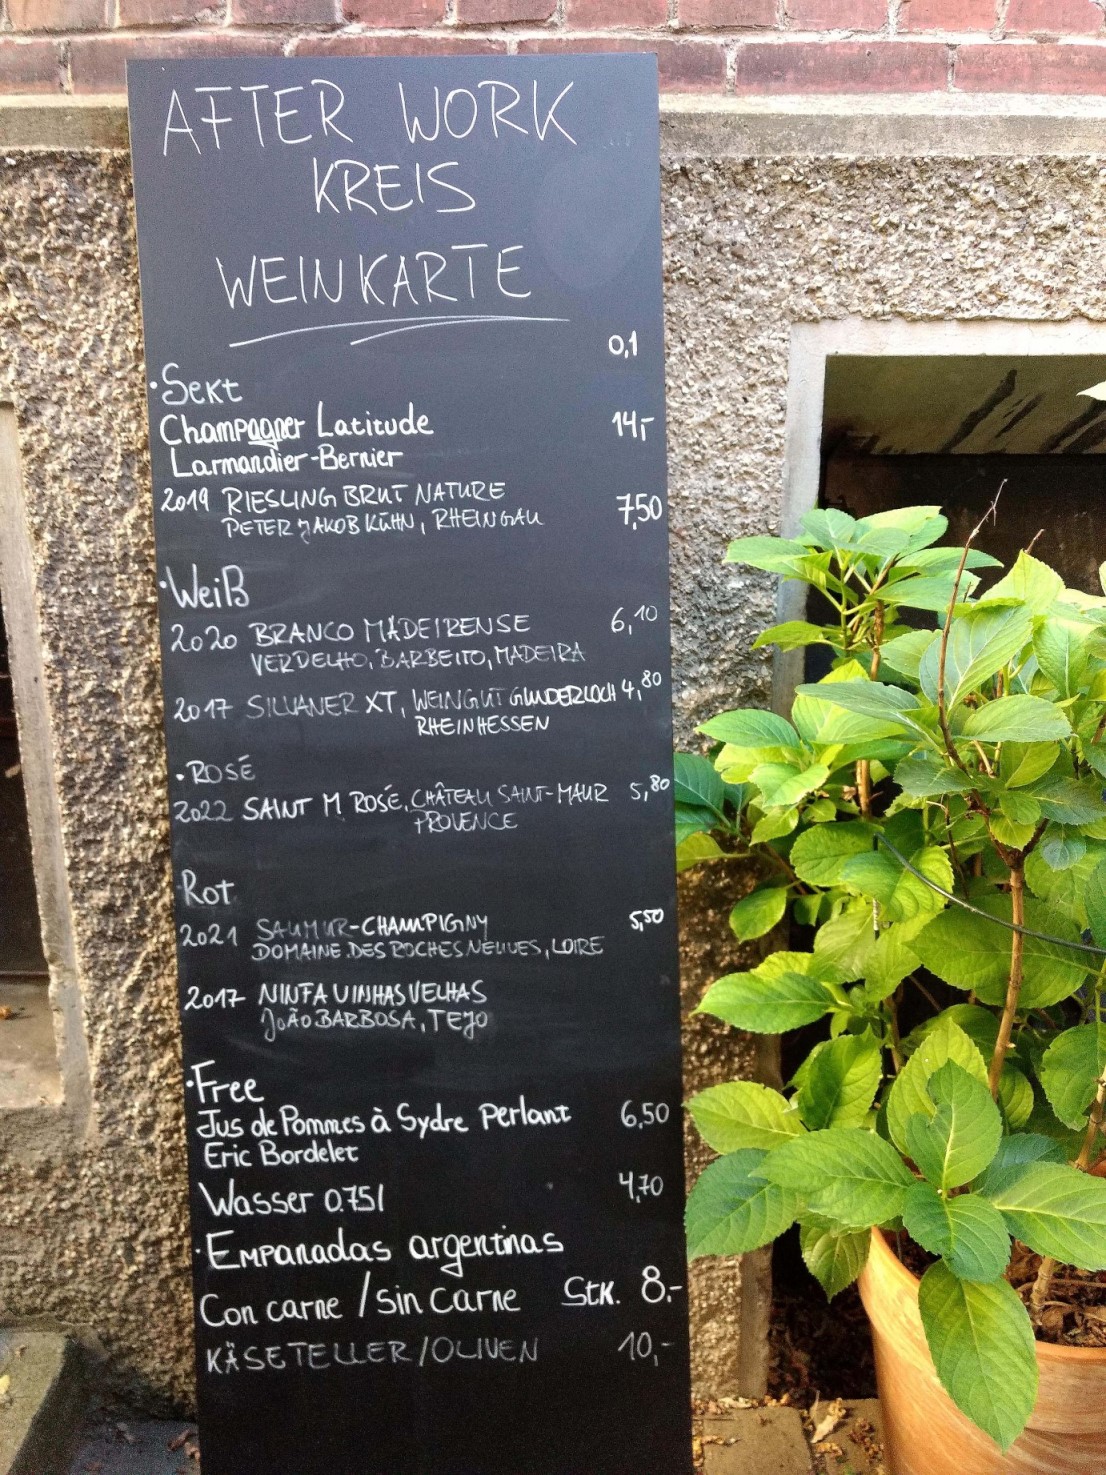 AFTER WORK
KREIS
WEINKARTE
0,1
·Sekt
Champagner Latitude 14,-
Larmandier-Bernier
2019 RIESLING BRUT NATURE 7,50
PETER JAKOB KÜHN, RHEINGAU
·Weiß
2020 BRANCO MADEIRENSE 6,10
VERDELHO, BARBEITO, MADEIRA
2017 SILVANER XT, WEINGUT GUNDERLOCH 4,80
RHEINHESSEN
·ROSÉ
2022 SAINT M ROSÉ, CHÂTEAU SAINT-MAUR 5,80
PROVENCE
Rot
2021 SAUMUR-CHAMPIGNY 5,50
DOMAINE DES ROCHES NEUVES, LOIRE
2017 NINFA VINHAS VELHAS
JOÃO BARBOSA, TEJO
·Free
Jus de Pommes à Sydre Perlant 6,50
Eric Bordelet
Wasser 0.75l 4,70
·Empanadas argentinas
Con carne / sin carne Stk. 8.-
KÄSETELLER/OLIVEN 10,-